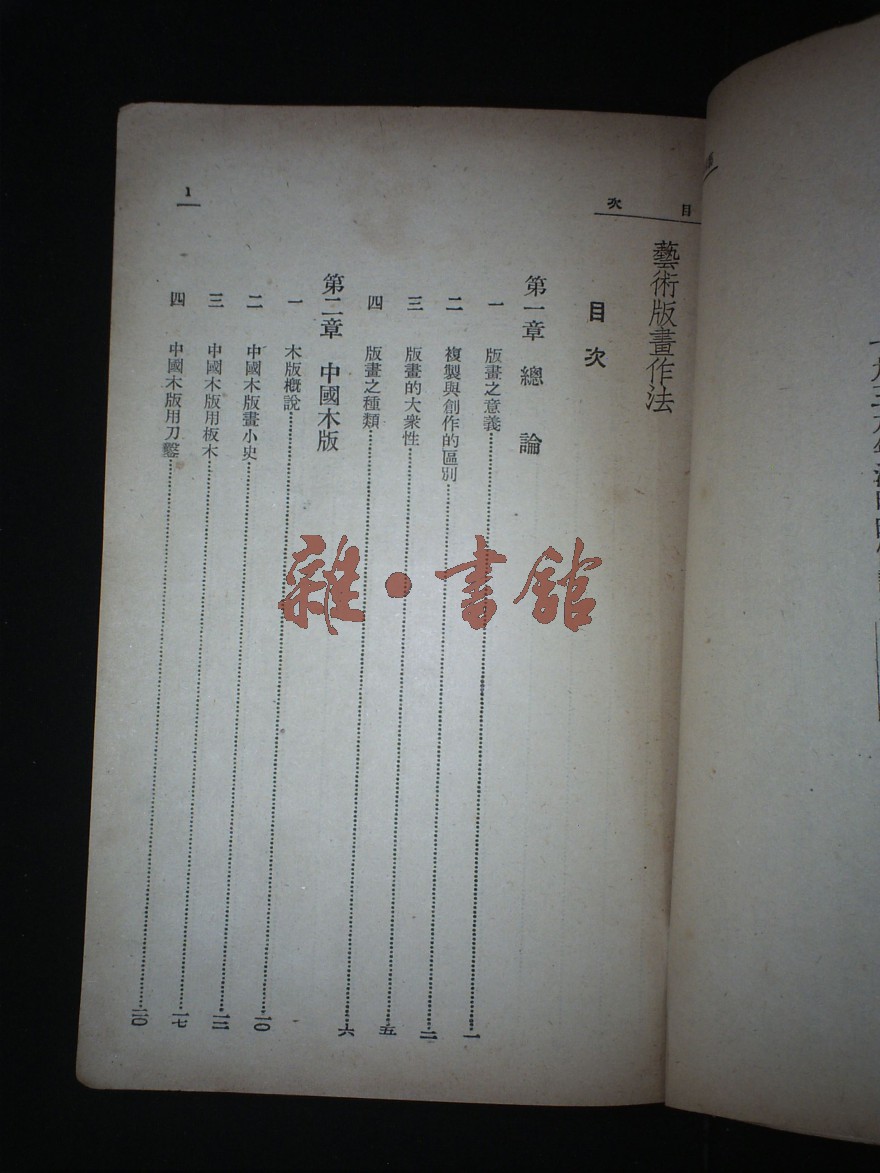 目次
1
藝術版畫作法
目次
第一章 總論
一 版畫之意義……一
二 複製與創作的區別……二
三 版畫的大衆性……五
四 版畫之種類……六
第二章 中國木版
一 木版概說……一〇
二 中國木版畫小史……一二
三 中國木版用板木……一七
四 中國木版用刀鑿……二〇
雜·書館